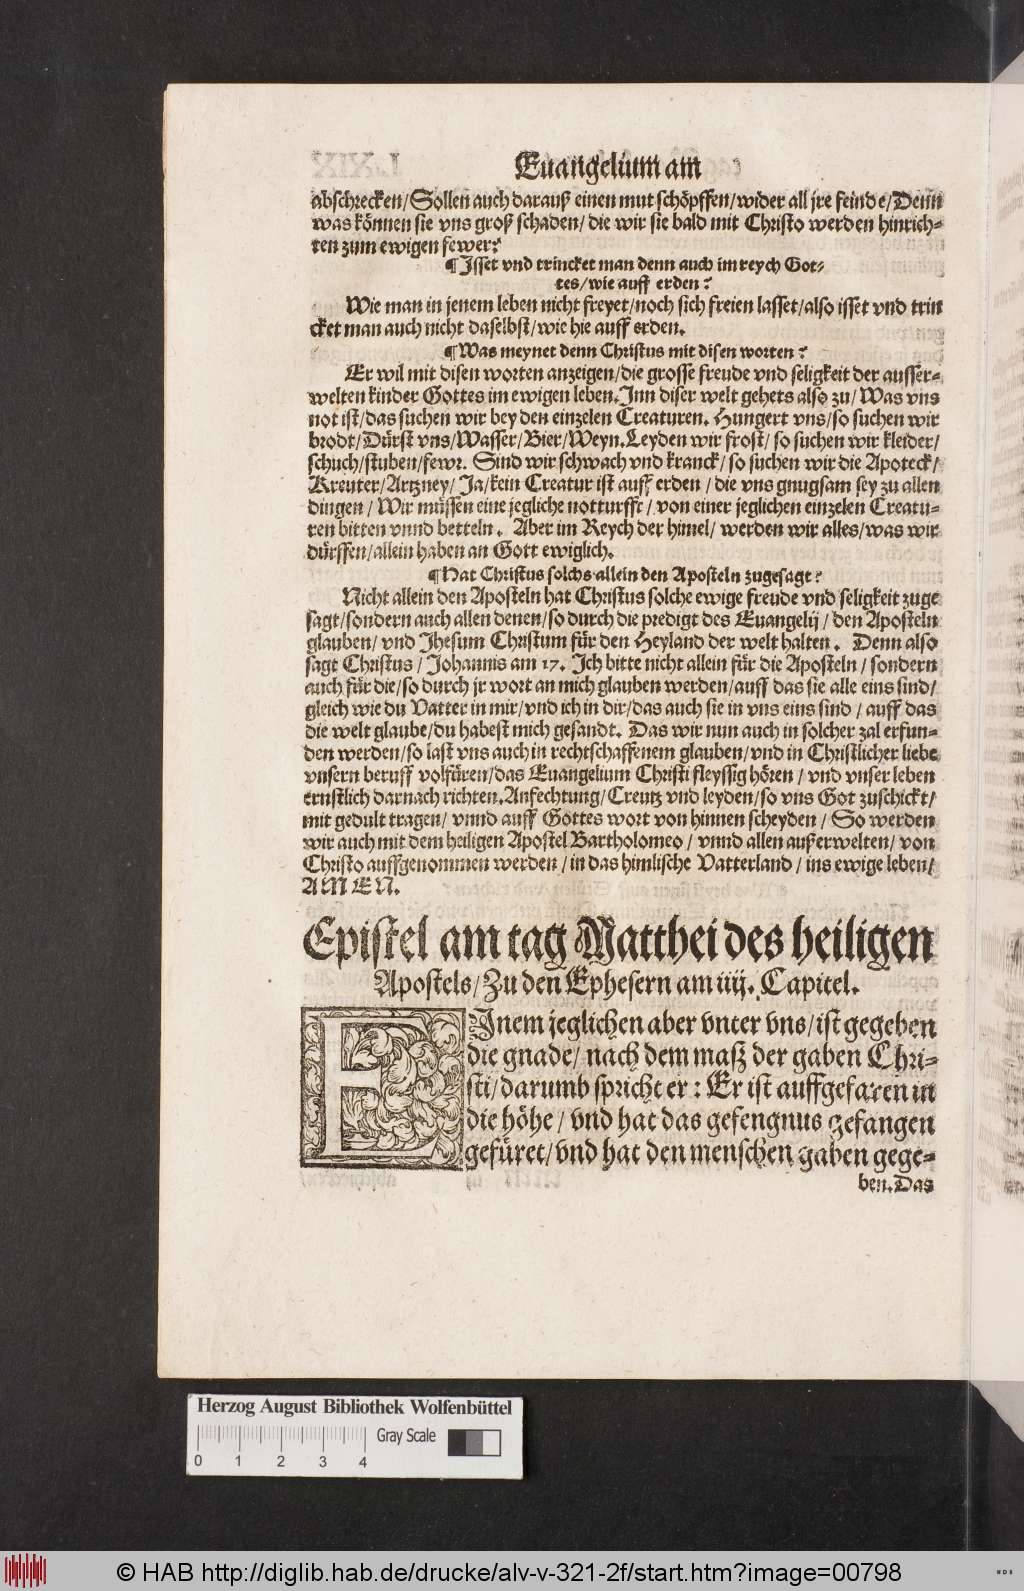 Euangelium am
abschrecken/Sollen auch darauß einen mut schöpffen/wider all jre feinde/Denn
was können sie vns groß schaden/ die wir sie bald mit Christo werden hinrich-
ten zum ewigen fewer?
¶ Isset vnd trincket man denn auch im reych Got-
tes/wie auff erden?
Wie man in jenem leben nicht freyet/noch sich freien lasset/also isset vnd trin
cket man auch nicht daselbst/wie hie auff erden.
¶ Was meynet denn Christus mit disen worten?
Er wil mit disen worten anzeigen/die grosse freude vnd seligkeit der ausser-
welten kinder Gottes im ewigen leben. Inn diser welt gehets also zu/Was vns
not ist/das suchen wir bey den einzelen Creaturen. Hungert vns/so suchen wir
brodt/Dürst vns/Wasser/Bier/Weyn. Leyden wir frost/ so suchen wir kleider/
schuch/stuben/fewr. Sind wir schwach vnd kranck/so suchen wir die Apoteck/
Kreuter/Artzney/ Ja/kein Creatur ist auff erden/die vns gnugsam sey zu allen
dingen/Wir müssen eine jegliche notturfft/von einer jeglichen einzelen Creatu-
ren bitten vnnd betteln. Aber im Reych der himel/ werden wir alles/was wir
dürffen/allein haben an Gott ewiglich.
¶ Hat Christus solchs allein den Aposteln zugesagt?
Nicht allein den Aposteln hat Christus solche ewige freude vnd seligkeit zuge
sagt/sondern auch allen denen/so durch die predigt des Euangelij/den Aposteln
glauben/vnd Jhesum Christum für den Heyland der welt halten. Denn also
sagt Christus/Johannis am 17. Ich bitte nicht allein für die Aposteln/sondern
auch für die/so durch jr wort an mich glauben werden/auff das sie alle eins sind/
gleich wie du Vatter in mir/vnd ich in dir/das auch sie in vns eins sind/auff das
die welt glaube/du habest mich gesandt. Das wir nun auch in solcher zal erfun-
den werden/so last vns auch in rechtschaffenem glauben/vnd in Christlicher liebe
vnsern beruff volfüren/das Euangelium Christi fleyssig hören/vnd vnser leben
ernstlich darnach richten. Anfechtung/Creutz vnd leyden/so vns Got zuschickt/
mit gedult tragen/vnnd auff Gottes wort von hinnen scheyden/So werden
wir auch mit dem heiligen Apostel Bartholomeo/vnnd allen außerwelten/von
Christo auffgenommen werden/in das himlische Vatterland/ins ewige leben/
AMEN.
Epistel am tag Matthei des heiligen
Apostels/Zu den Ephesern am iiij. Capitel.
EInem jeglichen aber vnter vns/ist gegeben
die gnade/nach dem maß der gaben Chri-
sti/darumb spricht er: Er ist auffgefaren in
die höhe/vnd hat das gefengnus gefangen
gefüret/vnd hat den menschen gaben gege-
ben. Das
Herzog August Bibliothek Wolfenbüttel
Gray Scale
0 1 2 3 4
© HAB http://diglib.hab.de/drucke/alv-v-321-2f/start.htm?image=00798